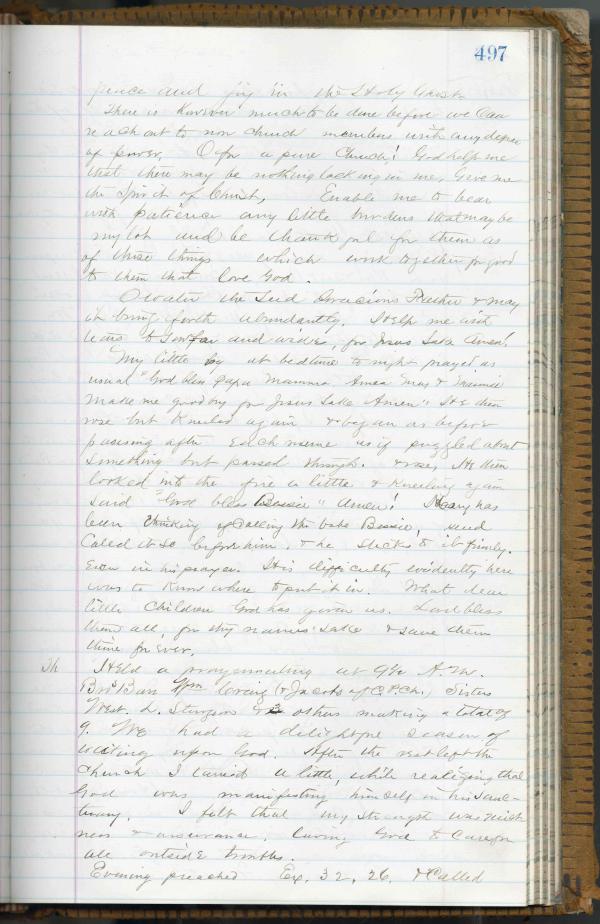 497
peace and joy in the Holy Ghost.
There is much to be done before we can
reach out to non church members with any degree
of power. O for a pure Church! God help me
that there may be nothing lacking in me. Give me
the Spirit of Christ, Enable me to bear
with patience any little burdens that may be
my lot and be thankful for them as
of those things which work together for good
to them that love God.
O water the Seed Gracious Father & may
it bring forth abundantly. Help me with
tears to Sow far and wide, for Jesus Sake Amen!
My little boy at bedtime to night prayed as
usual "God bless papa Mamma &
make me good boy for Jesus Sake Amen" He then
rose but Kneeled again & began as before
pausing after Each name as if puzzled about
Something but passed through. & rose, He then
looked into the fire a little & Kneeling again
Said "God bless Bessie" Amen! Mary has
been thinking of Calling the babe Bessie, and
Called it So before him, & he Sticks to it firmly.
Even in his prayer. His difficulty evidently here
was to Know where to put it in. What dear
little Children God has given us. Lord bless
them all, for thy names Sake & Save them
thine for ever.
Held a prayermeeting at A.M.
Bros Loving (& Jacobs of C.P.Ch.) Sisters
West. L. Sturgeon & 2 others making a total of
9. We had a delightful Season of
waiting upon God. After the rest left the
Church I tarried a little, while realizing that
God was manifesting himself in his Sanc-
tuary. I felt that my Strength was quiet
ness & assurance, leaving God to Care for
all outside troubles.
Evening preached Ex. 32, 26. & Called